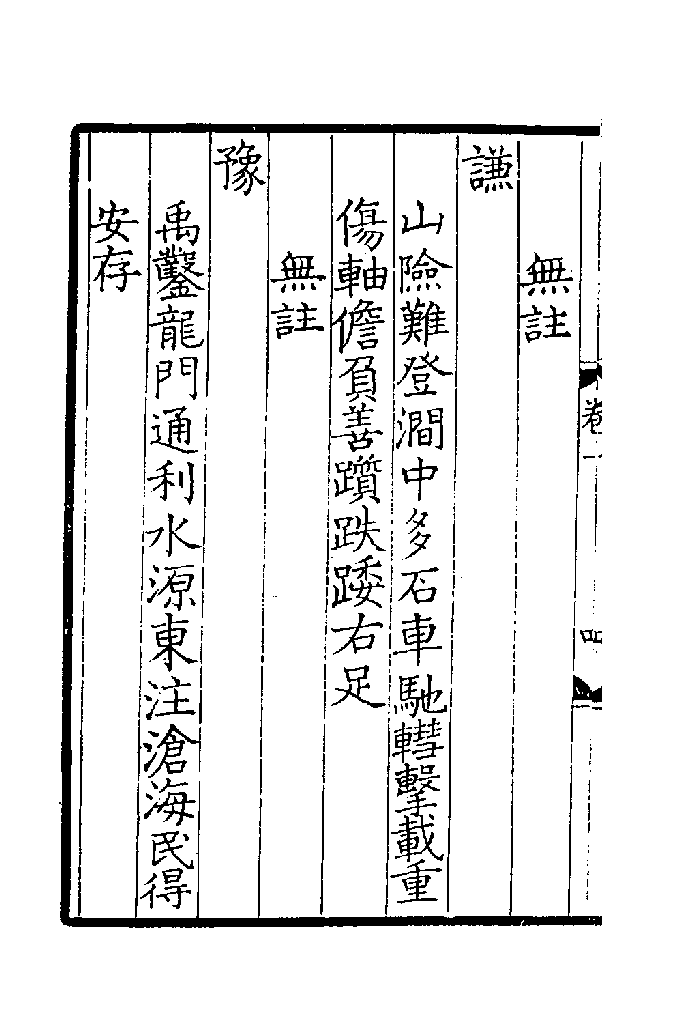 無註
謙
山險難登澗中多石車馳轊擊載重
傷軸儋負善躓跌踒右足
無註
豫
禹鑿龍門通利水源東注滄海民得
安存
卷一